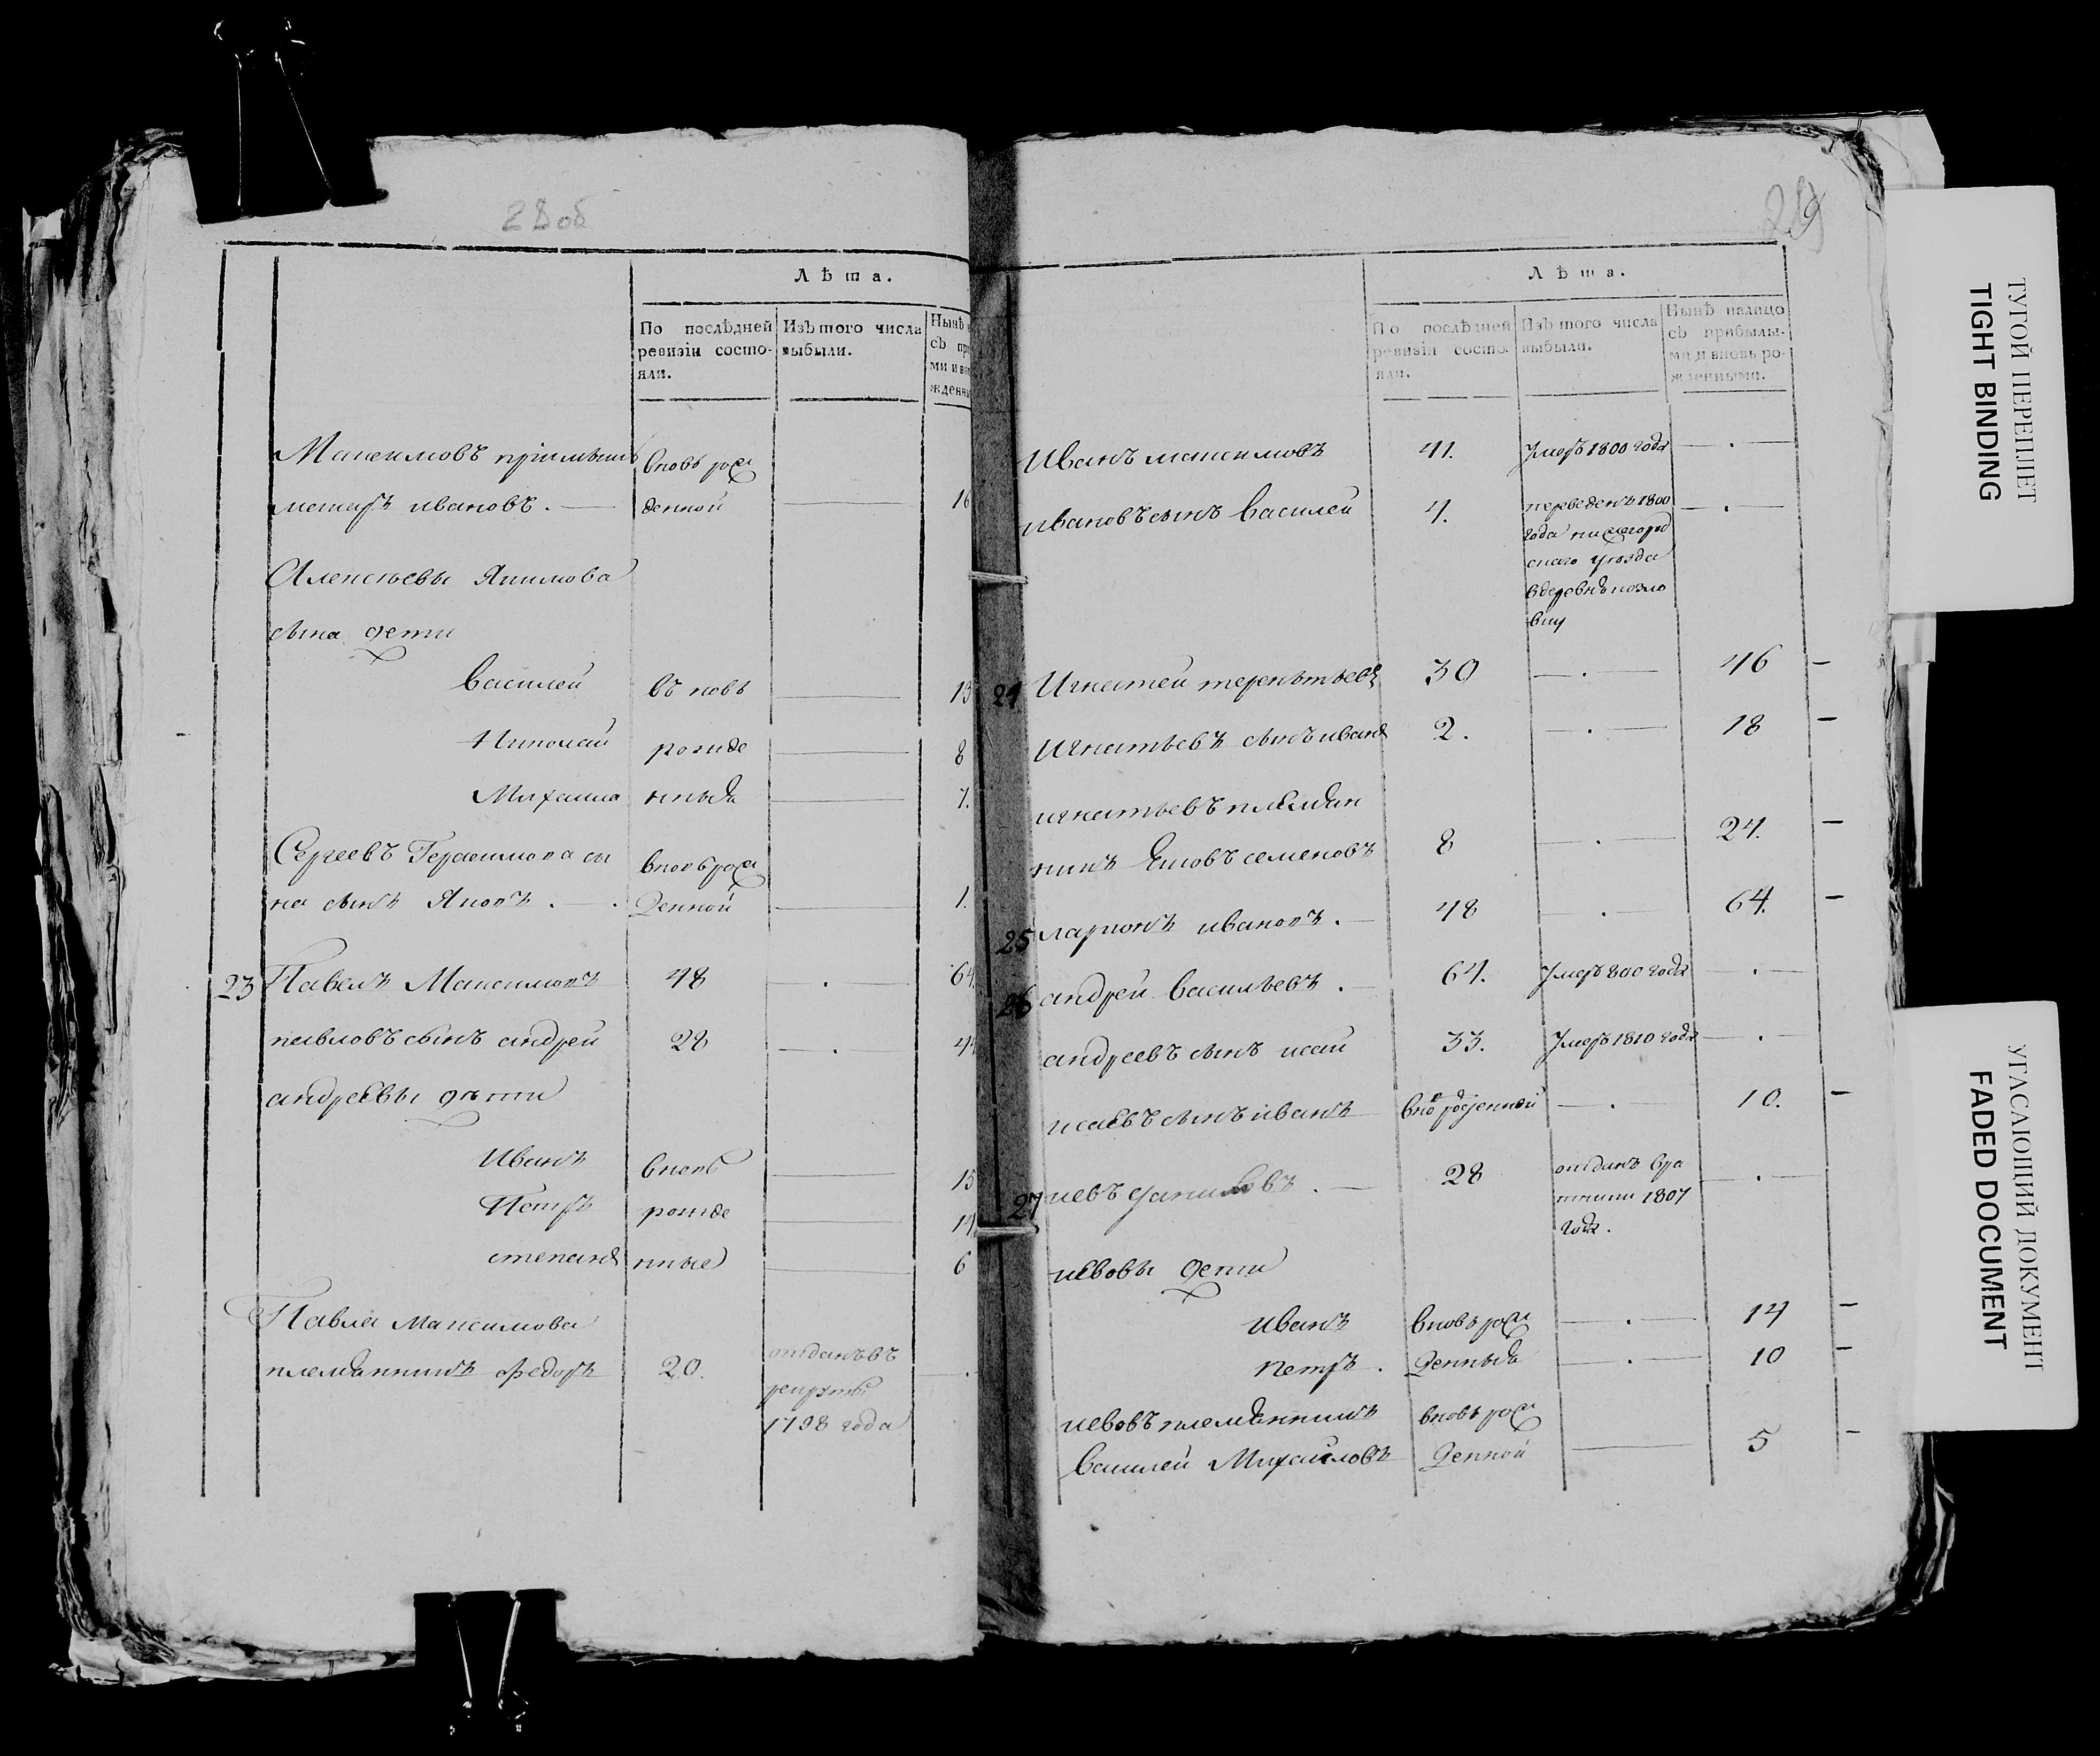 28 об
Лѣта.
По послѣдней ревизіи состояли.
Изъ того числа выбыли.
Нынѣ
съ пр
ми и вн
жденны
Максимовъ приимышъ вновь рож
ивановъ . — денной — 16
Алексѣевы Якимова
сына дети
Василей въ новь — 13
Николай рожде — 8
Михаила нныя — 7.
Сергеевъ Герасимова сы вновь рож
на сынъ Яковъ . — денной — 1.
23 Павелъ Максимовъ 48 — . — 64
павловъ сынъ андрей 28 — . — 4
андреевы дѣти
Иванъ вновь — 15
Петръ рожде — 14
степанъ нные — 6
Павла Максимова
племянникъ Федоръ 20. отданъ въ
рекруты
1798 года
29
Лѣта.
По послѣдней ревизіи состояли.
Изъ того числа выбыли.
Нынѣ налицо съ прибылыми и вновь рожденными.
Иванъ максимовъ 41. Умеръ 1800 года — . —
ивановъ сынъ Василей 4. переведенъ 1800 — . —
года нижегород
скаго уѣзда
в деревню козло
вку
24 Игнатей терентьевъ 30 — . — 46 —
Игнатьевъ сынъ иванъ 2. — . — 18 —
игнатьевъ племян
никъ Яковъ семеновъ 8 — . — 24. —
25 ларионъ ивановъ . — 48 — . — 64. —
26 андрей Васильевъ . — 64. Умеръ 800 года — . —
андреевъ сынъ исай 33. Умеръ 1810 года — . —
исаевъ сынъ иванъ вно рожденной — . — 10. —
27 левъ даниловъ . — 28 отданъ вра — . —
тники 1807
года.
левовы дети
иванъ вновь рож — . — 14 —
петръ . денныя — . — 10 —
левовъ племянникъ вновь рож
Василей Михайловъ денной — 5 —
ТУГОЙ ПЕРЕПЛЕТ
TIGHT BINDING
УГАСАЮЩИЙ ДОКУМЕНТ
FADED DOCUMENT